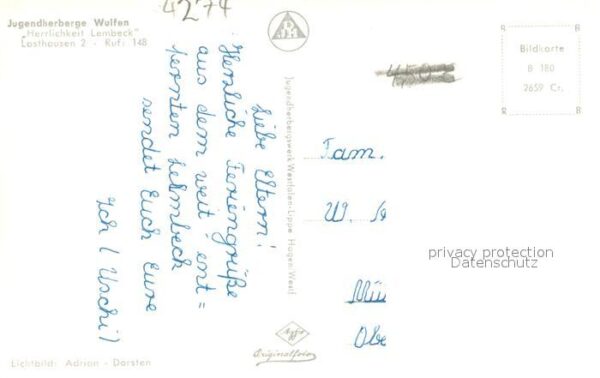 4274
Jugendherberge Wulfen
„Herrlichkeit Lembeck"
Lasthausen 2 - Ruf: 148
Liebe Eltern!
Herzliche Feriengrüße
aus dem weit ent=
fernten Lehmbeck
sendet Euch Eure
Ich (Uschi)
Jugendherbergswerk Westfalen-Lippe Hagen-Westf
Bildkarte
B 180
2659 Cr.
Fam.
W.
privacy protection
Datenschutz
Mü
Obe
Agfa
Originalfoto
Lichtbild: Adrian - Dorsten